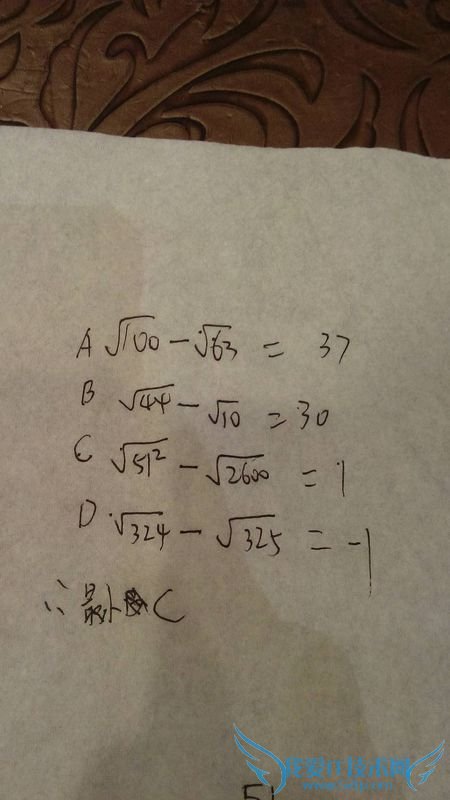 A √100 - √63 = 37
B √44 - √10 = 30
C √51² - √2600 = 1
D √324 - √325 = -1
∴ 最小 C
51